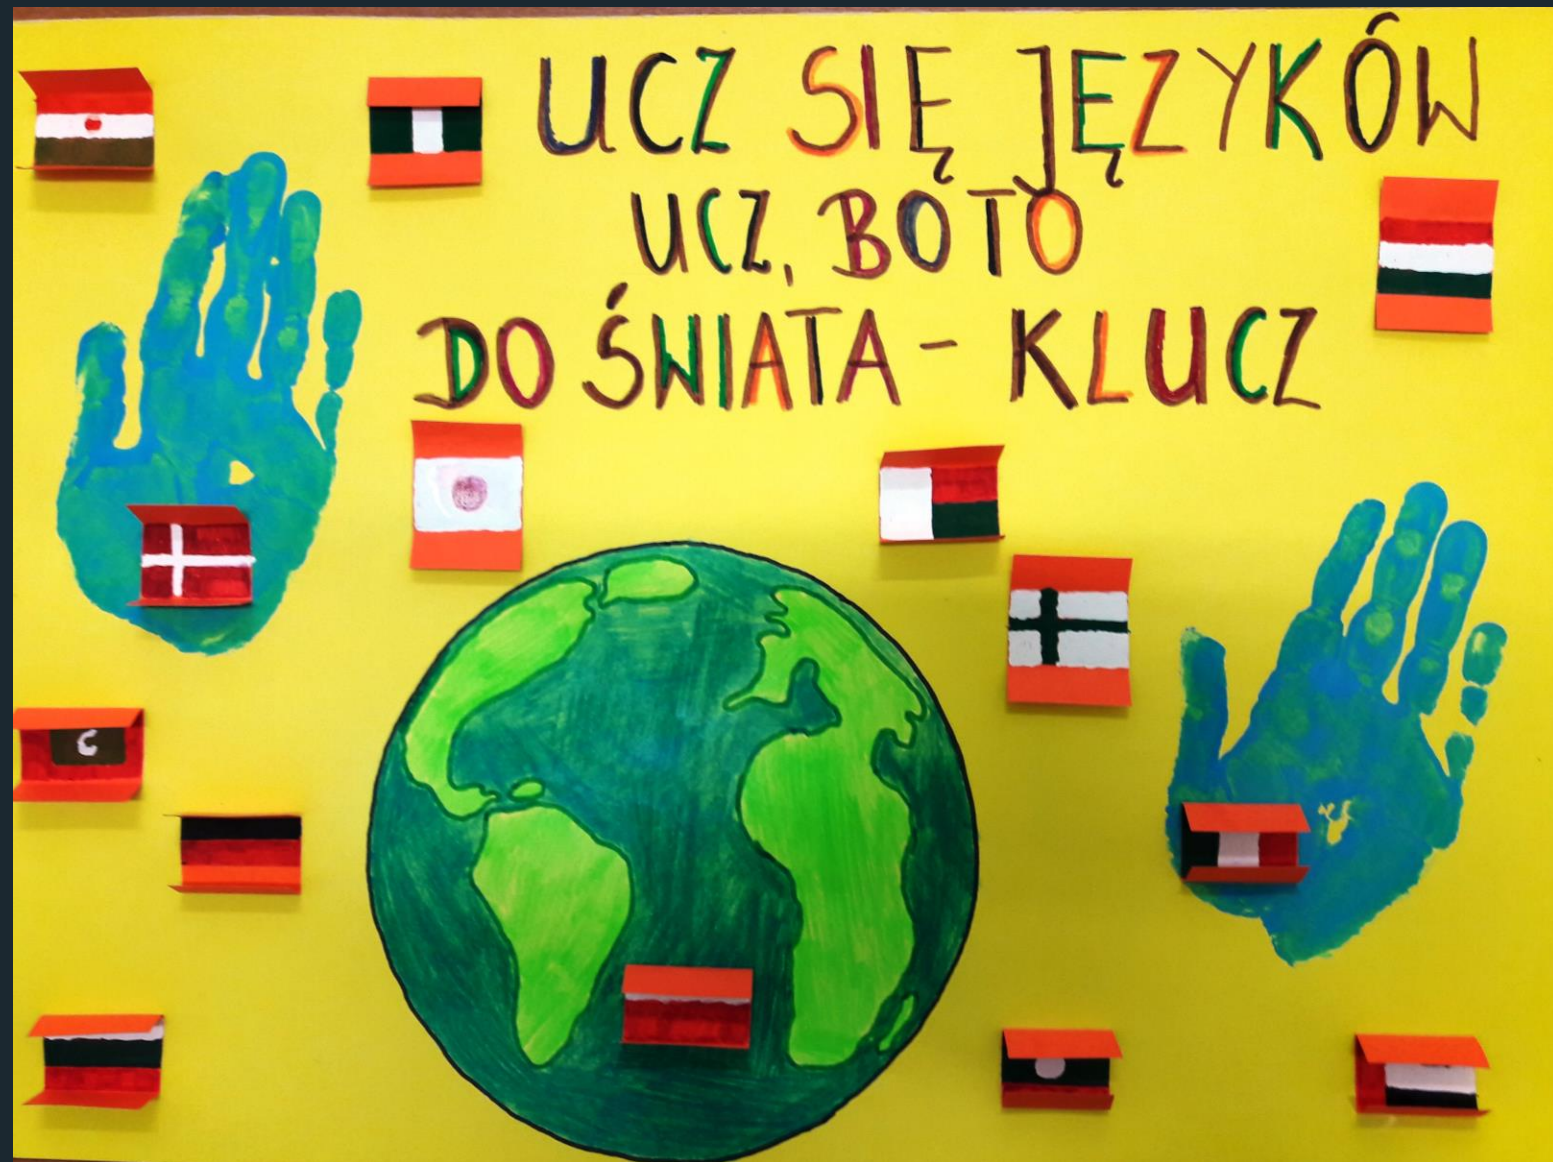 UCZ SIĘ JĘZYKÓW
UCZ, BO TO
DO ŚWIATA - KLUCZ